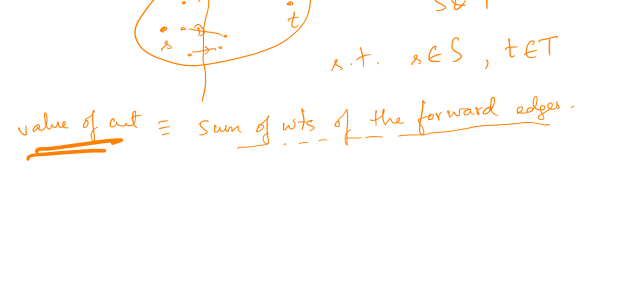 t
s
s.t. s∈S, t∈T
value of cut ≡ sum of wts of the forward edges.